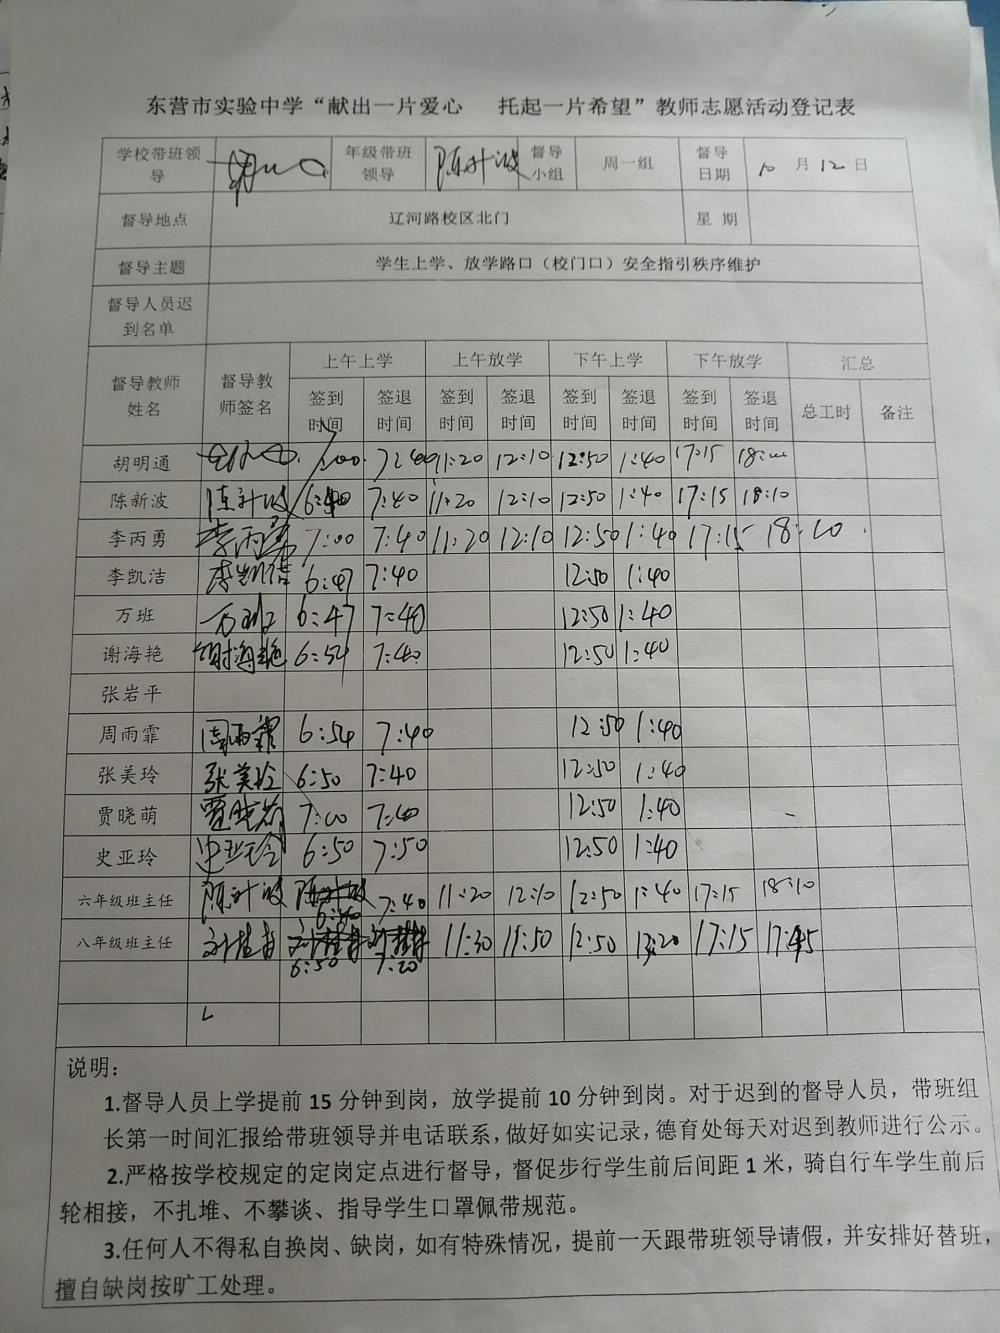 东营市实验中学“献出一片爱心 托起一片希望”教师志愿活动登记表
学校带班领导 年级带班领导 陈新波 督导小组 周一组 督导日期 10月12日
督导地点 辽河路校区北门 星期
督导主题 学生上学、放学路口（校门口）安全指引秩序维护
督导人员迟到名单
督导教师姓名 督导教师签名 上午上学 上午放学 下午上学 下午放学 汇总
签到时间 签退时间 签到时间 签退时间 签到时间 签退时间 签到时间 签退时间 总工时 备注
胡明通 7:40 11:20 12:10 12:50 1:40 17:15
陈新波 陈新波 7:40 11:20 12:10 12:50 1:40 17:15 18:10
李丙勇 李丙勇 7:00 7:40 11:20 12:10 12:50 1:40 17:15 18:10
李凯洁 李凯洁 6:47 7:40 12:50 1:40
万班 万班 6:47 7:40 12:50 1:40
谢海艳 谢海艳 6:54 7:40 12:50 1:40
张岩平
周雨霏 周雨霏 6:54 7:40 12:50 1:40
张美玲 张美玲 6:50 7:40 12:50 1:40
贾晓萌 贾晓萌 7:00 7:40 12:50 1:40
史亚玲 史亚玲 6:50 7:50 12:50 1:40
六年级班主任 陈新波 6:40 7:40 11:20 12:10 12:50 1:40 17:15 18:10
八年级班主任 6:50 7:20 11:30 11:50 12:50 13:20 17:15 17:45
说明：
1.督导人员上学提前 15 分钟到岗，放学提前 10 分钟到岗。对于迟到的督导人员，带班组
长第一时间汇报给带班领导并电话联系，做好如实记录，德育处每天对迟到教师进行公示。
2.严格按学校规定的定岗定点进行督导，督促步行学生前后间距 1 米，骑自行车学生前后
轮相接，不扎堆、不攀谈、指导学生口罩佩带规范。
3.任何人不得私自换岗、缺岗，如有特殊情况，提前一天跟带班领导请假，并安排好替班，
擅自缺岗按旷工处理。